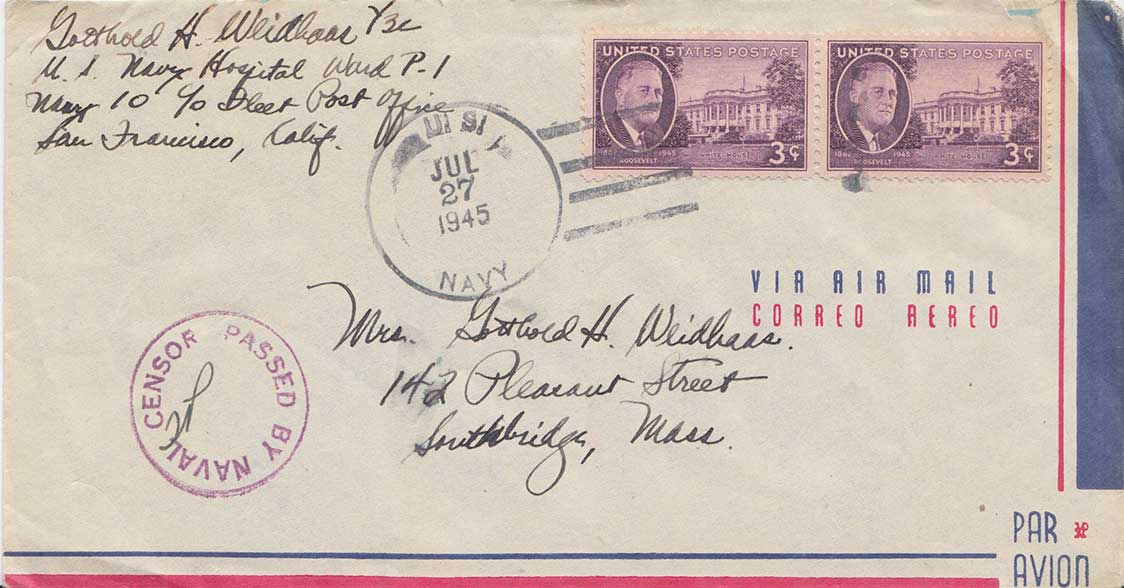 Gotthold H. Weidhaas Y3c
U. S. Navy Hospital Ward P-1
Navy 10 c/o Fleet Post Office
San Francisco, Calif.
U. S.
JUL
27
1945
NAVY
UNITED STATES POSTAGE
1882 1945
ROOSEVELT
WHITE HOUSE
3¢
UNITED STATES POSTAGE
1882 1945
ROOSEVELT
WHITE HOUSE
3¢
VIA AIR MAIL
CORREO AEREO
Mrs. Gotthold H. Weidhaas.
142 Pleasant Street
Southbridge, Mass.
PASSED BY NAVAL CENSOR
PAR
AVION